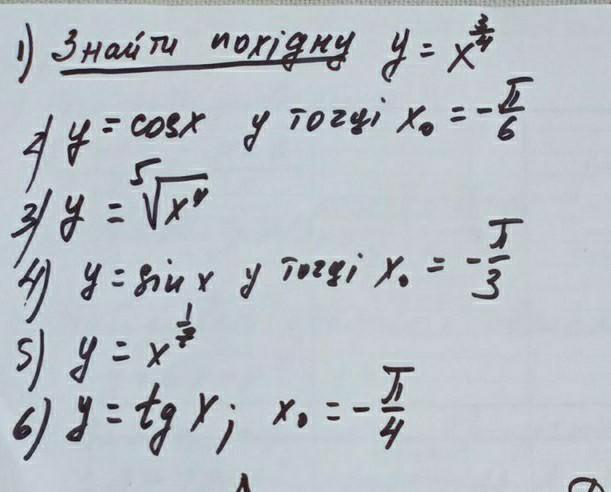 1) Знайти похідну y = x^(3/4)
2) y = cosx у точці x₀ = -π/6
3) y = ⁵√x⁴
4) y = sin x у точці x₀ = -π/3
5) y = x^(1/7)
6) y = tg x; x₀ = -π/4